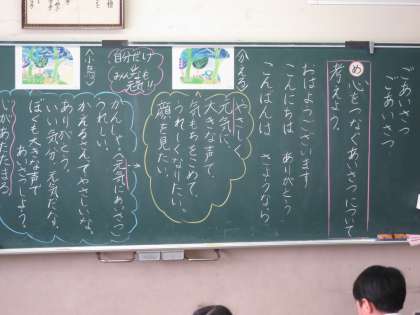 ごあいさつ
ごあいさつ
め 心をつなぐあいさつについて
考えよう。
おはようございます
こんにちは ありがとう
こんばんは さようなら
〈かえる〉
やさしく
元気に、
大きな声で、
気もちをこめて、
うれしくなりたい。
顔を見たい。
自分だけ
みんなも
元気!!
〈小鳥〉
かんしゃ。(元気にあいさつ)
うれしい。
かえるさんてやさしいな。
ありがとう。
いい気分。元気だな。
ぼくも大きな声で
あいさつしよう。
心があたたまる